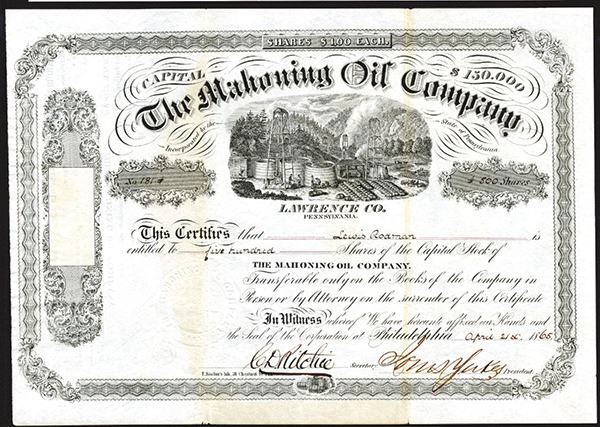 SHARES $1.00 EACH.
CAPITAL $150.000
The Mahoning Oil Company
Incorporated by the State of Pennsylvania.
No 181 500 Shares
LAWRENCE CO.
PENNSYLVANIA.
This Certifies that Lewis Rodman is
entitled to five hundred Shares of the Capital Stock of
THE MAHONING OIL COMPANY.
Transferable only on the Books of the Company in
Person or by Attorney on the surrender of this Certificate
In Witness whereof We have hereunto affixed our Hands and
the Seal of the Corporation at Philadelphia April 21st 1865
Ritchie Secretary President